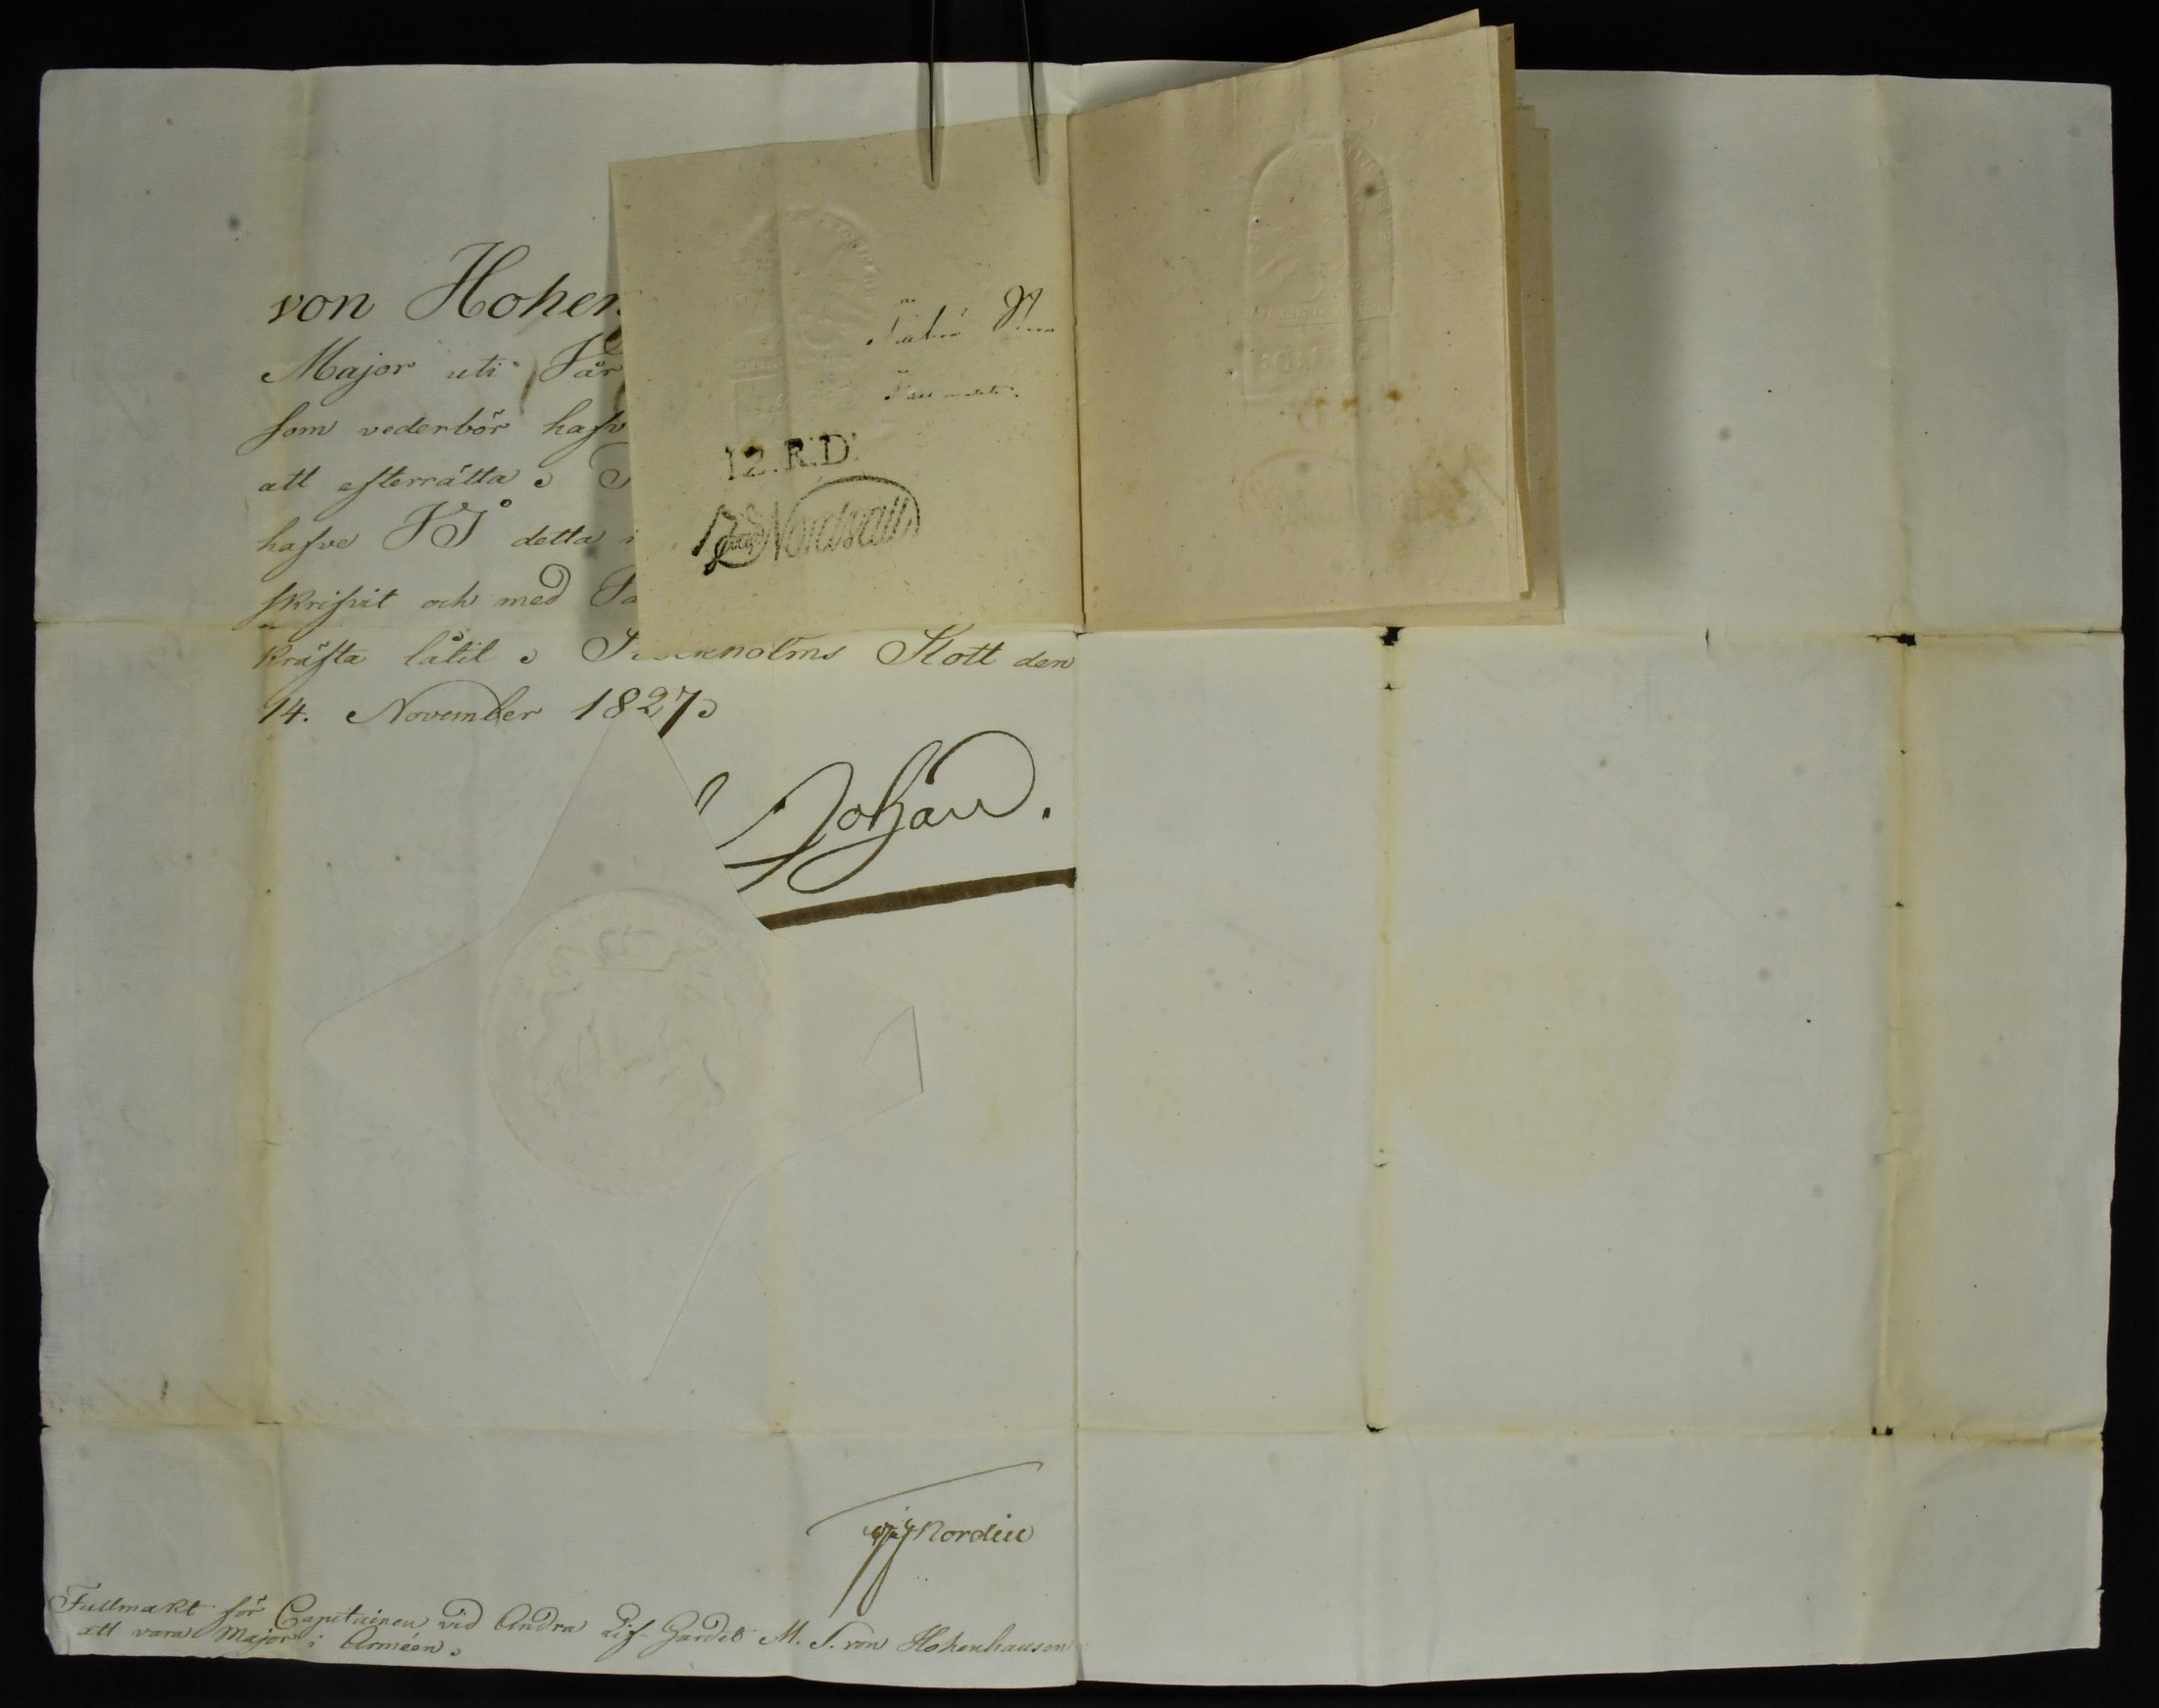 von Hohen
Major uti Vår
som vederbör hafv
att efterrätta.
hafve VI detta
skrifvit och med
kräfta låtit. Stockholms Slott den
14. November 1827.
12.R.D.
Nordwall
Johan.
Nordin
Fullmakt för Capitainen vid Andra Lif-Gardet M. S. von Hohenhausen
att vara Major i Arméen.